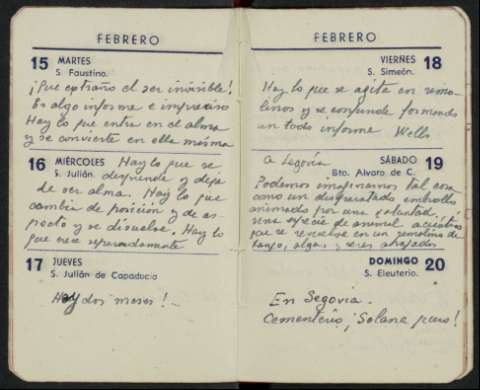 FEBRERO
15 MARTES
S. Faustino.
¡Que extraño el ser invisible!
Es algo informe e impreciso
Hay lo que entra en el alma
y se convierte en ella misma
16 MIÉRCOLES Hay lo que se
S. Julián. desprende y deja
de ser alma. Hay lo que
cambia de posición y de as-
pecto y se disuelve. Hay lo
que nace
17 JUEVES
S. Julián de Capadocia
Hoy dos meses!..
FEBRERO
VIERNES 18
S. Simeón.
Hay lo que se agita en remo-
linos y se confunde formando
un todo informe Wells
a Segovia SÁBADO 19
Bto. Alvaro de C.
Podemos imaginarnos tal cosa
como un desgraciado embrollo
animado por una voluntad,
una especie de animal acuático
que se revuelve en un remolino de
fango, algas y seres ahogados
DOMINGO 20
S. Eleuterio.
En Segovia.
Cementerio, ¡Solana puro!